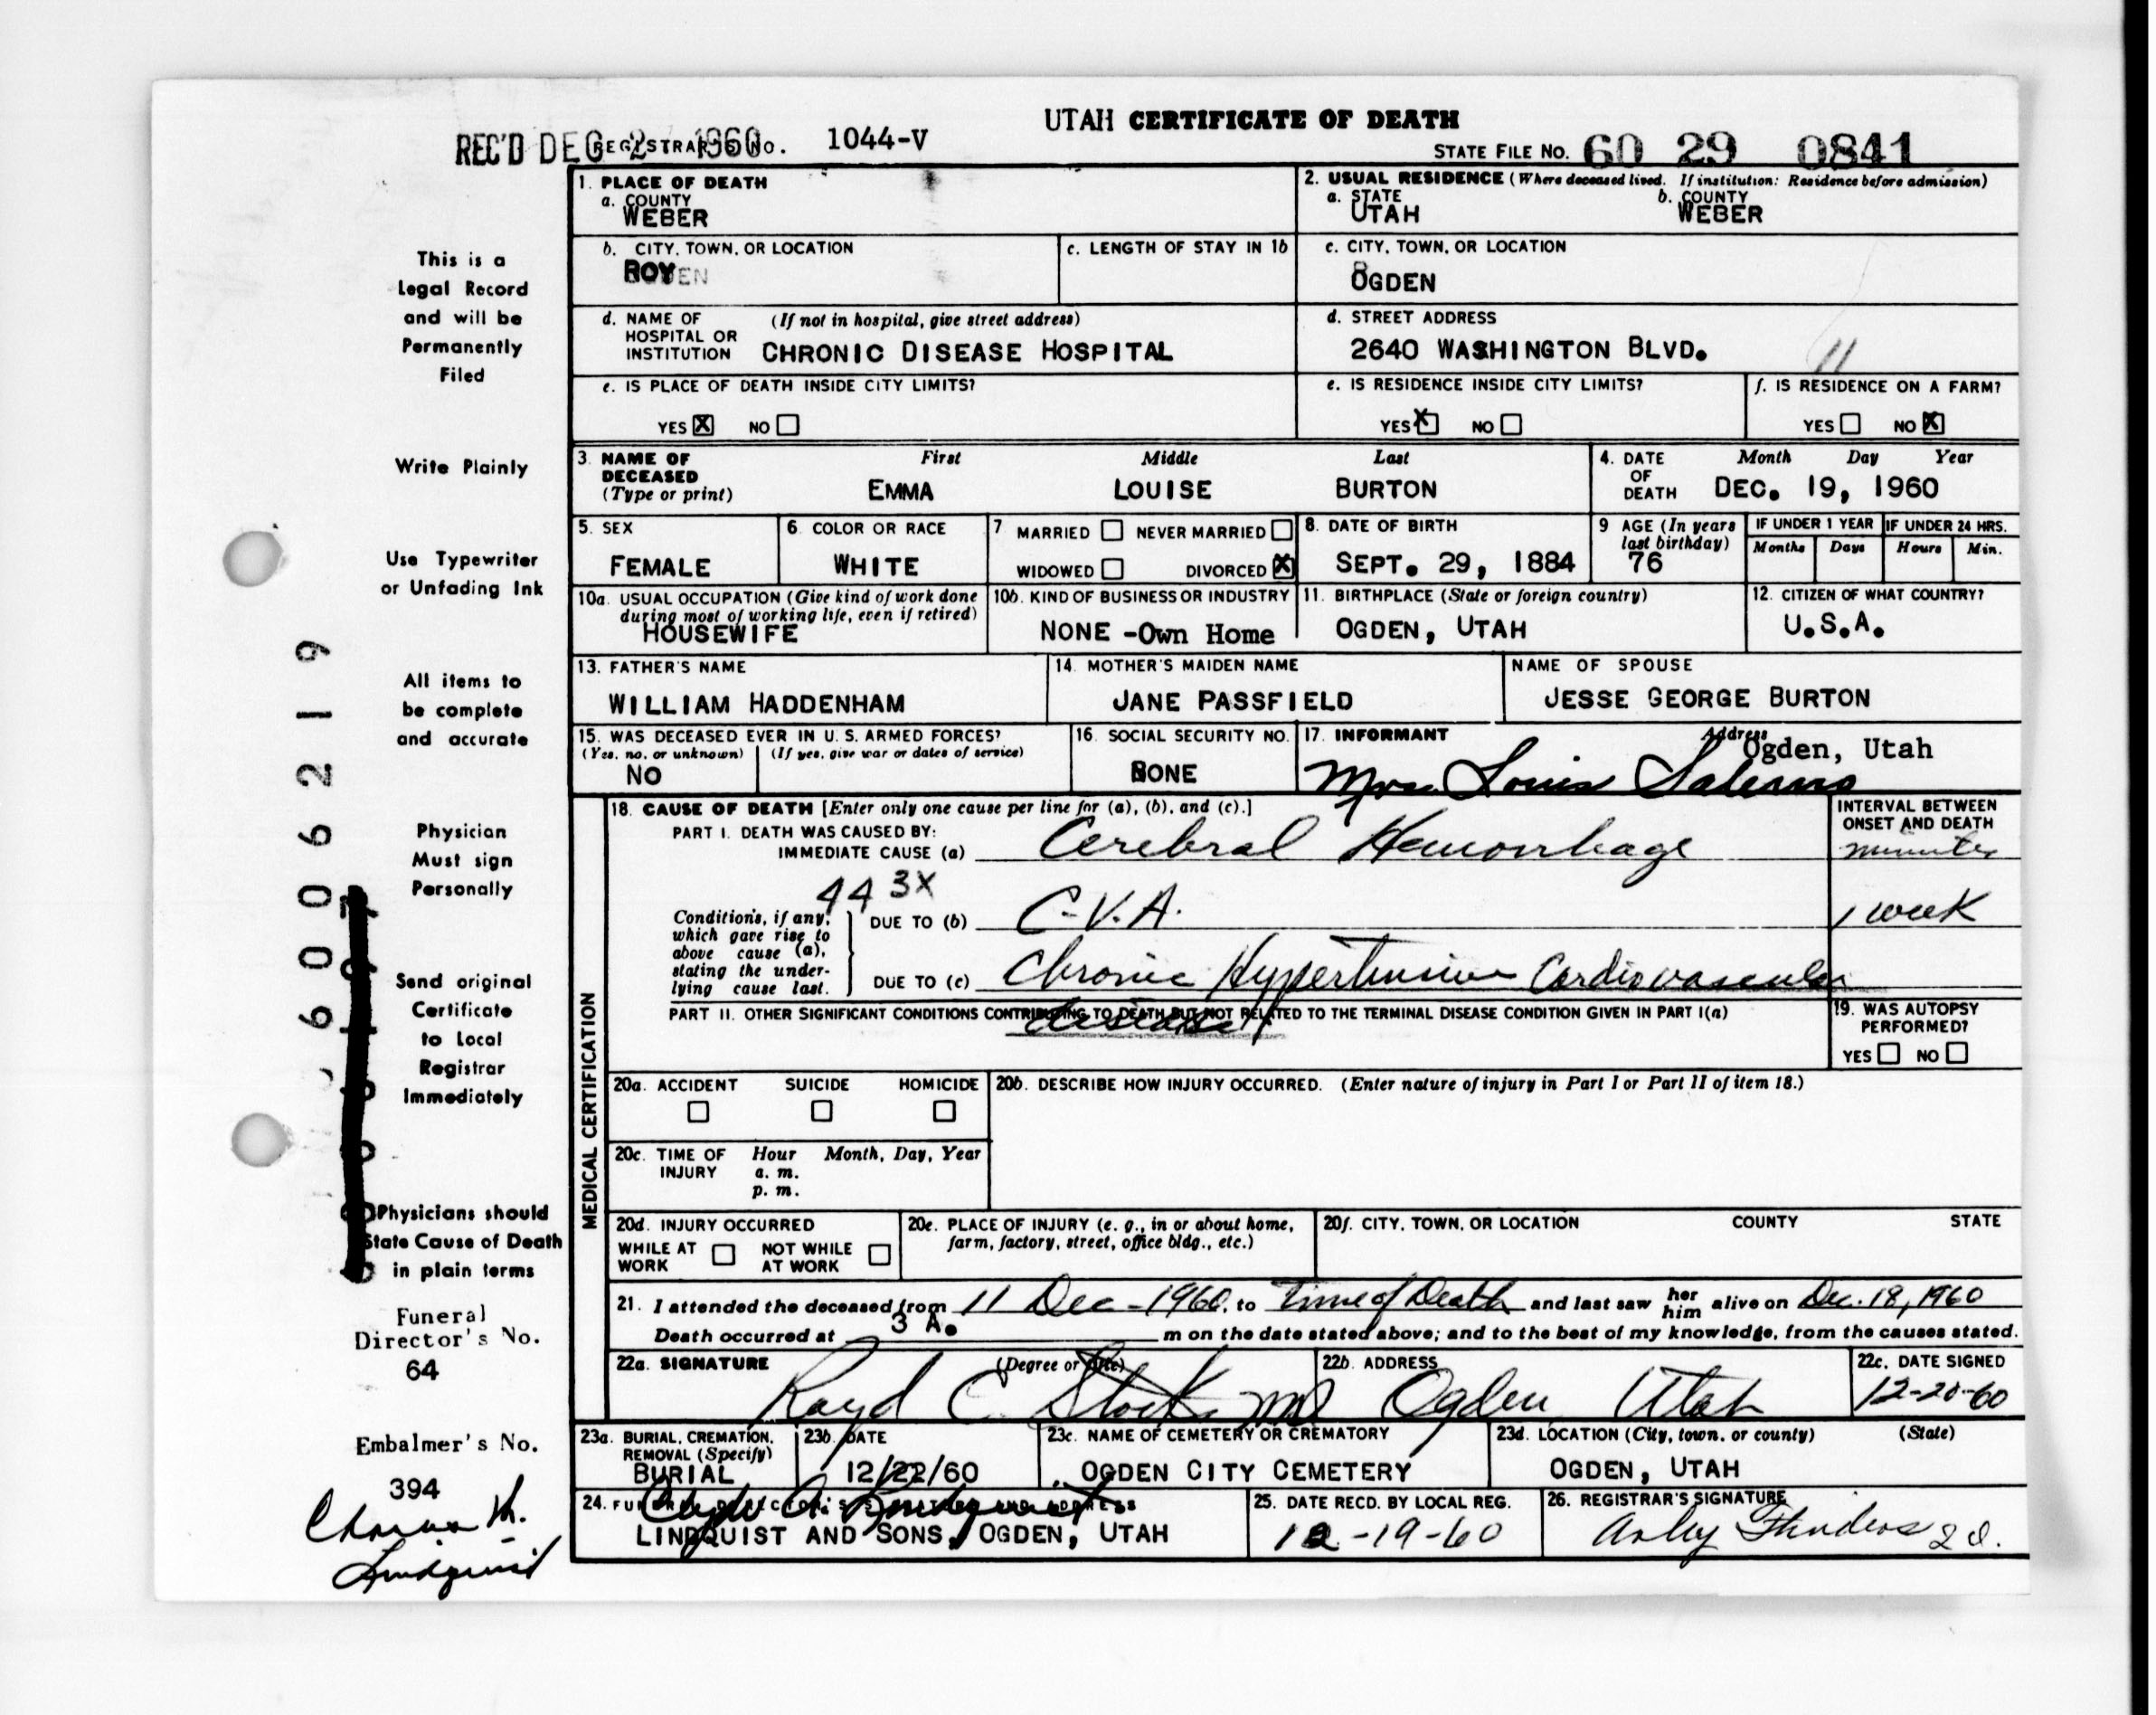 UTAH CERTIFICATE OF DEATH
REC'D DEC 2 1960 REGISTRAR'S No. 1044-V
STATE FILE NO. 60 29 0841
1. PLACE OF DEATH
a. COUNTY
WEBER
2. USUAL RESIDENCE (Where deceased lived. If institution: Residence before admission)
a. STATE
UTAH
b. COUNTY
WEBER
b. CITY, TOWN, OR LOCATION
ROY
c. LENGTH OF STAY IN 1b
c. CITY, TOWN, OR LOCATION
OGDEN
d. NAME OF HOSPITAL OR INSTITUTION (If not in hospital, give street address)
CHRONIC DISEASE HOSPITAL
d. STREET ADDRESS
2640 WASHINGTON BLVD. 11
e. IS PLACE OF DEATH INSIDE CITY LIMITS?
YES X NO
e. IS RESIDENCE INSIDE CITY LIMITS?
YES X NO
f. IS RESIDENCE ON A FARM?
YES NO X
3. NAME OF DECEASED (Type or print)
First Middle Last
EMMA LOUISE BURTON
4. DATE OF DEATH
Month Day Year
DEC. 19, 1960
5. SEX
FEMALE
6. COLOR OR RACE
WHITE
7 MARRIED NEVER MARRIED
WIDOWED DIVORCED X
8. DATE OF BIRTH
SEPT. 29, 1884
9 AGE (In years last birthday)
76
IF UNDER 1 YEAR
Months Days
IF UNDER 24 HRS.
Hours Min.
10a. USUAL OCCUPATION (Give kind of work done during most of working life, even if retired)
HOUSEWIFE
10b. KIND OF BUSINESS OR INDUSTRY
NONE -Own Home
11. BIRTHPLACE (State or foreign country)
OGDEN, UTAH
12. CITIZEN OF WHAT COUNTRY?
U.S.A.
13. FATHER'S NAME
WILLIAM HADDENHAM
14. MOTHER'S MAIDEN NAME
JANE PASSFIELD
NAME OF SPOUSE
JESSE GEORGE BURTON
15. WAS DECEASED EVER IN U. S. ARMED FORCES?
(Yes, no, or unknown) (If yes, give war or dates of service)
NO
16. SOCIAL SECURITY NO.
NONE
17. INFORMANT Address
Ogden, Utah
Mrs. Louis Salerno
MEDICAL CERTIFICATION
18. CAUSE OF DEATH [Enter only one cause per line for (a), (b), and (c).]
INTERVAL BETWEEN ONSET AND DEATH
PART I. DEATH WAS CAUSED BY:
IMMEDIATE CAUSE (a) Cerebral Hemorrhage minutes
443X
Conditions, if any, which gave rise to above cause (a), stating the underlying cause last.
DUE TO (b) C.V.A. 1 week
DUE TO (c) Chronic Hypertensive Cardiovascular
disease
PART II. OTHER SIGNIFICANT CONDITIONS CONTRIBUTING TO DEATH BUT NOT RELATED TO THE TERMINAL DISEASE CONDITION GIVEN IN PART I(a)
19. WAS AUTOPSY PERFORMED?
YES NO
20a. ACCIDENT SUICIDE HOMICIDE
20b. DESCRIBE HOW INJURY OCCURRED. (Enter nature of injury in Part I or Part II of item 18.)
20c. TIME OF INJURY
Hour Month, Day, Year
a. m.
p. m.
20d. INJURY OCCURRED
WHILE AT WORK NOT WHILE AT WORK
20e. PLACE OF INJURY (e. g., in or about home, farm, factory, street, office bldg., etc.)
20f. CITY, TOWN, OR LOCATION COUNTY STATE
21. I attended the deceased from 11 Dec-1960, to Time of Death and last saw her him alive on Dec. 18, 1960
Death occurred at 3 A. m on the date stated above; and to the best of my knowledge, from the causes stated.
22a. SIGNATURE (Degree or title)
Royd C. Stocks MD
22b. ADDRESS
Ogden Utah
22c. DATE SIGNED
12-20-60
23a. BURIAL, CREMATION, REMOVAL (Specify)
BURIAL
23b. DATE
12/22/60
23c. NAME OF CEMETERY OR CREMATORY
OGDEN CITY CEMETERY
23d. LOCATION (City, town, or county) (State)
OGDEN, UTAH
24. FUNERAL DIRECTOR'S SIGNATURE AND ADDRESS
Clyde A. Lindquist
LINDQUIST AND SONS, OGDEN, UTAH
25. DATE RECD. BY LOCAL REG.
12-19-60
26. REGISTRAR'S SIGNATURE
This is a
Legal Record
and will be
Permanently
Filed
Write Plainly
Use Typewriter
or Unfading Ink
All items to
be complete
and accurate
Physician
Must sign
Personally
Send original
Certificate
to Local
Registrar
Immediately
Physicians should
State Cause of Death
in plain terms
Funeral
Director's No.
64
Embalmer's No.
394
Lindquist
6006219